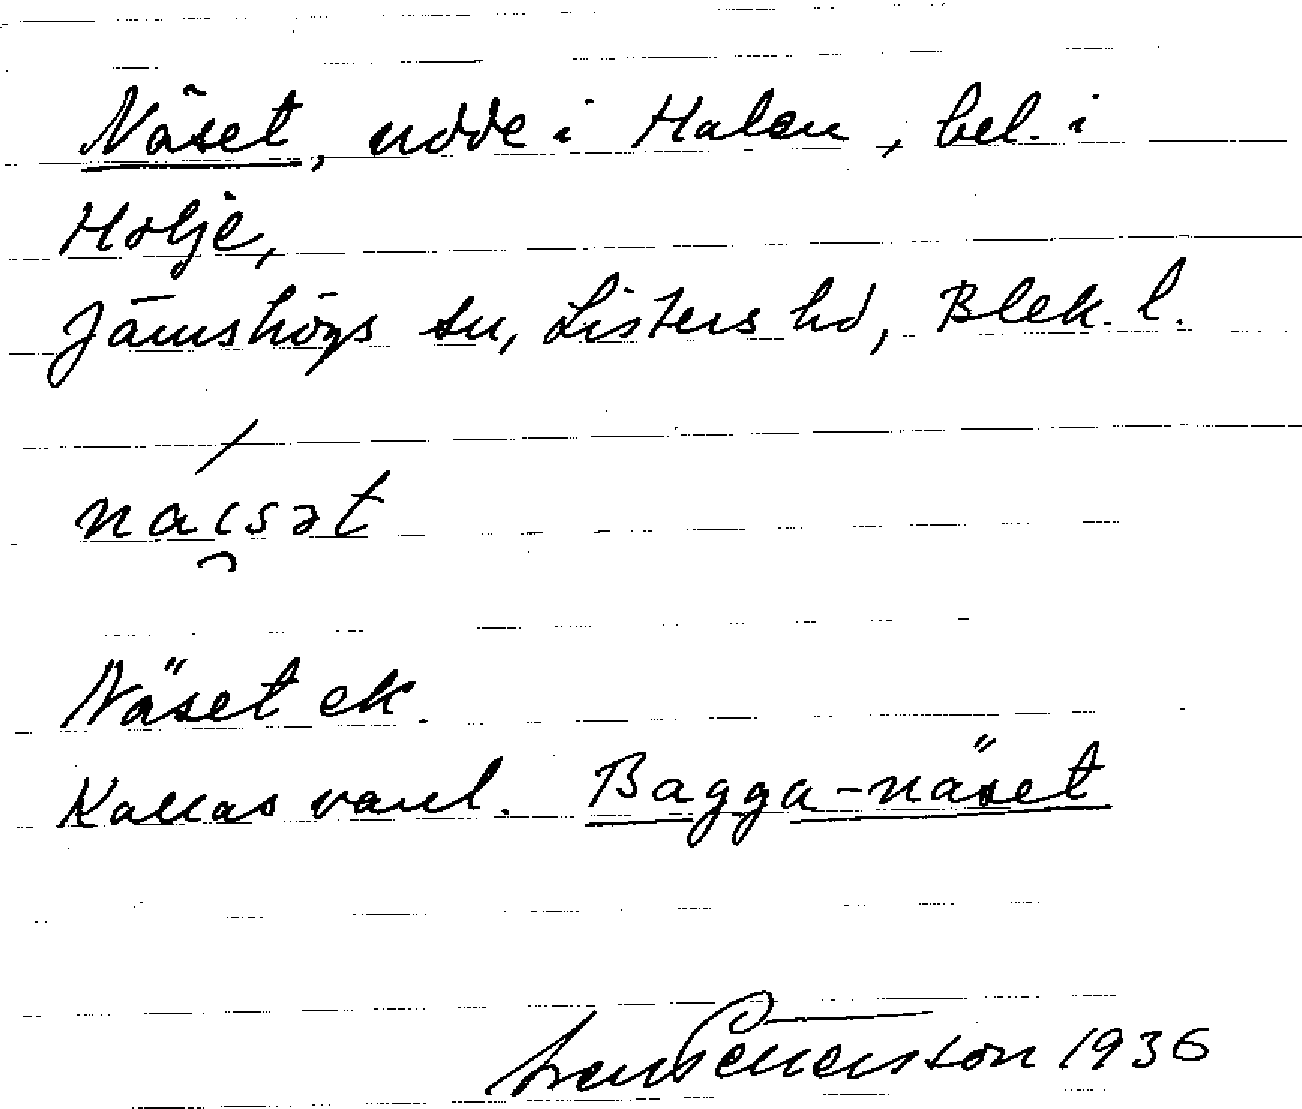 Näset, udde i Halen, bel. i
Holje,
Jämshögs sn, Listers hd, Blek. l.
naisət
Näset ek.
Kallas vanl. Bagga-näset
Pettersson 1936